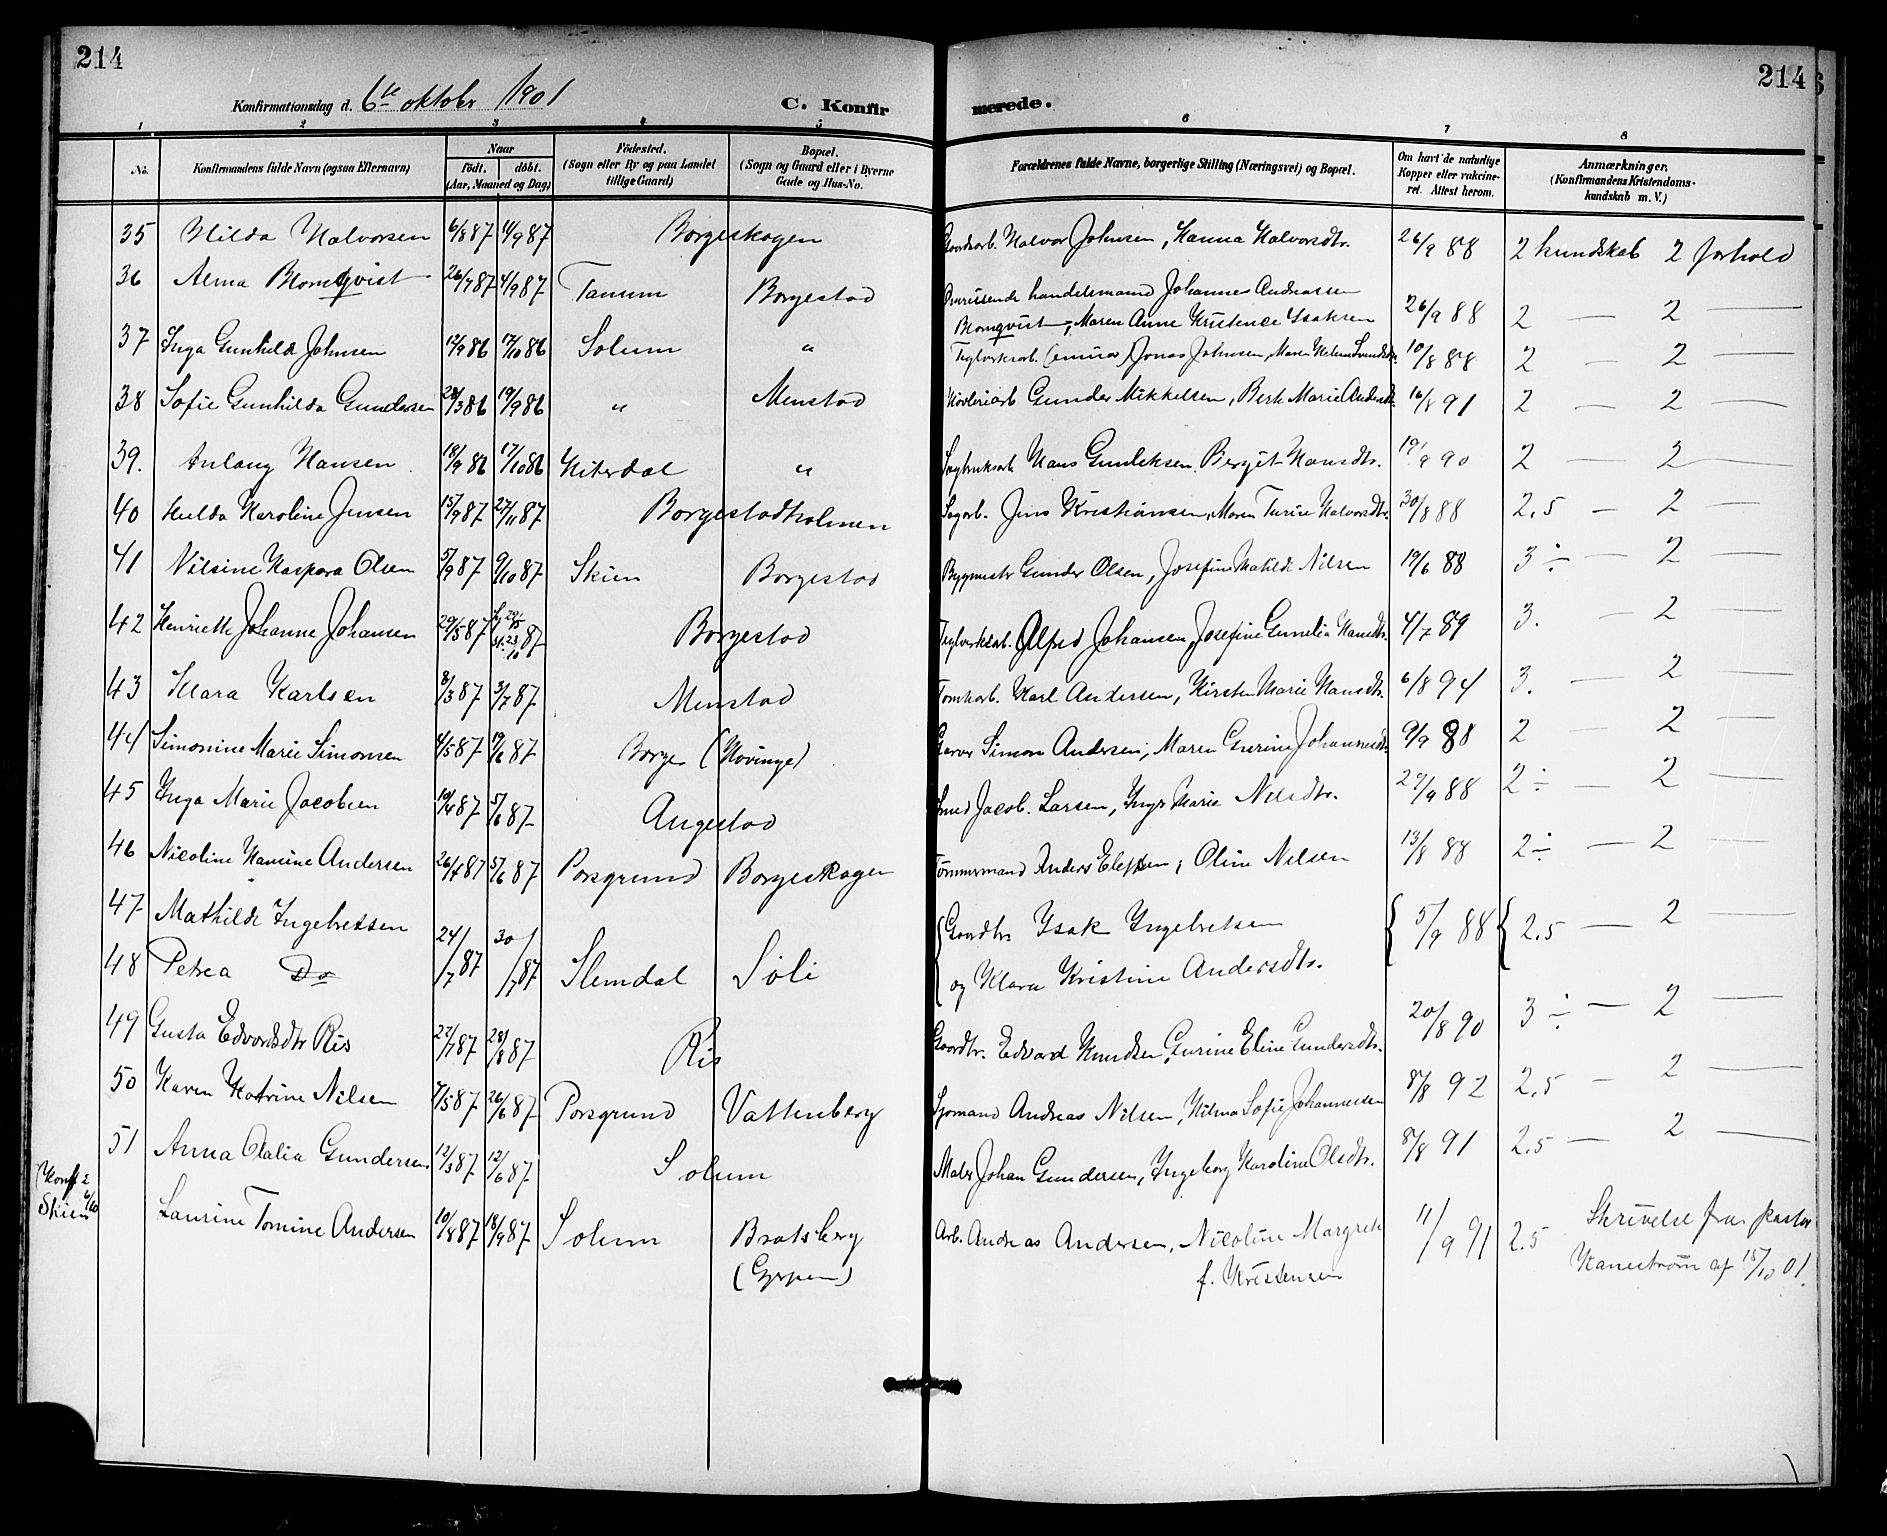 214
214
Konfirmationsdag d. 6te oktobr 1901
C. Konfirmerede.
1 2 3 4 5 6 7 8
No. Konfirmandens fulde Navn (ogsaa Efternavn) Naar födt. döbt. (Aar, Maaned og Dag) Födested. (Sogn eller By og paa Landet tillige Gaard) Bopæl. (Sogn og Gaard eller i Byerne Gade og Hus-No. Forældrenes fulde Navne, borgerlige Stilling (Næringsvei) og Bopæl. Om havt de naturlige Kopper eller vakcineret. Attest herom. Anmærkninger. (Konfirmandens Kristendomskundskab m. V.)
35 Hilda Halvorsen 6/8 87 4/9 87 Borgeskogen Halvor Johnsen, Hanna Halvorsdtr. 26/9 88 2 kundskab 2 forhold
36 Alma Blomqvist 26/7 87 4/9 87 Tanum Borgestad Omreisende handelsmand Johannes Andreassen
Blomqvist, Maren Anne Kristence Isaksen 26/9 88 2 — 2 —
37 Inga Gunhilde Johnsen 12/9 86 17/10 86 Solum " Teglverksarb. Jonas Johnsen, Maren Helene 10/8 88 2 — 2 —
38 Sofie Gunhilda Gundersen 28/3 86 19/9 86 " Menstad Høvleriarb Gunder Mikkelsen, Berthe Marie Andersdtr. 16/8 91 2 — 2 —
39. Anlaug Hansen 18/9 86 17/10 86 Hiterdal " Sagbruksarb Hans Gunleksen, Bergit Hansdtr. 19/9 90 2 — 2 —
40 Hulda Karoline Jensen 15/9 87 27/11 87 Borgestadholmen Sagarb. Jens Kristiansen, Maren Turine Halvorsdtr. 30/8 88 2.5 — 2 —
41 Nilsine Kaspara Olsen 5/9 87 9/10 87 Skien Borgestad Bygmester Gunder Olsen, Josefine Matilde Nilsen 19/6 88 3 ÷ — 2 —
42 Henriette Johanne Johansen 29/5 87 87 Borgestad Teglverksarb. Alfred Johansen, Josefine Gunelia Hansdtr. 4/7 89 3. — 2 —
43 Klara Karlsen 8/3 87 3/7 87 Menstad Tomtearb. Karl Andersen, Kirsten Marie Hansdtr. 6/8 94 3. — 2 —
44 Simonine Marie Simonsen 4/5 87 19/6 87 Borge (Hovinge) Garver Simon Andersen, Maren Gurine Johannesdtr. 9/9 88 2 — 2 —
45 Inga Marie Jacobsen 10/4 87 5/6 87 Augestad Smed Jacob Larsen, Inger Marie Nilsdtr. 27/9 88 2 ÷ — 2 —
46 Nicoline Hansine Andersen 26/4 87 5/6 87 Porsgrund Borgeskogen Tømmermand Anders Elefsen, Oline Nilsen 13/8 88 2 ÷ — 2 —
47 Mathilde Ingebretsen Gaardbr. Isak Ingebretsen 5/9 88 2.5 — 2 —
48 Petrea Do 24/7 87 30/7 87 Slemdal Søli og Klara Kristine Andersdtr.
49 Gusta Edvardsdtr Ris 22/7 87 28/8 87 Ris Gaardbr. Edvard Knudsen, Gurine Eline Gundersdtr. 20/8 90 3 ÷ — 2 —
50 Karen Katrine Nilsen 7/5 87 26/6 87 Porsgrund Vattenberg Sjømand Andreas Nilsen, Hilma Sofie Johannessen 8/8 92 2.5 — 2 —
51 Anna Olalia Gundersen 12/3 87 12/6 87 Solum Maler Johan Gundersen, Ingeborg Karoline Olsdtr. 8/8 91 2.5 — 2 —
Konf. i
Skien 6/10
Laurine Tomine Andersen 10/8 87 18/9 87 Solum Bratsberg Arb. Andreas Andersen, Nicoline Margrete 11/9 91 2.5 Skrivelse fra pastor
(Gjerpen) f. Kristensen Kanestrøm af 15/10 01.